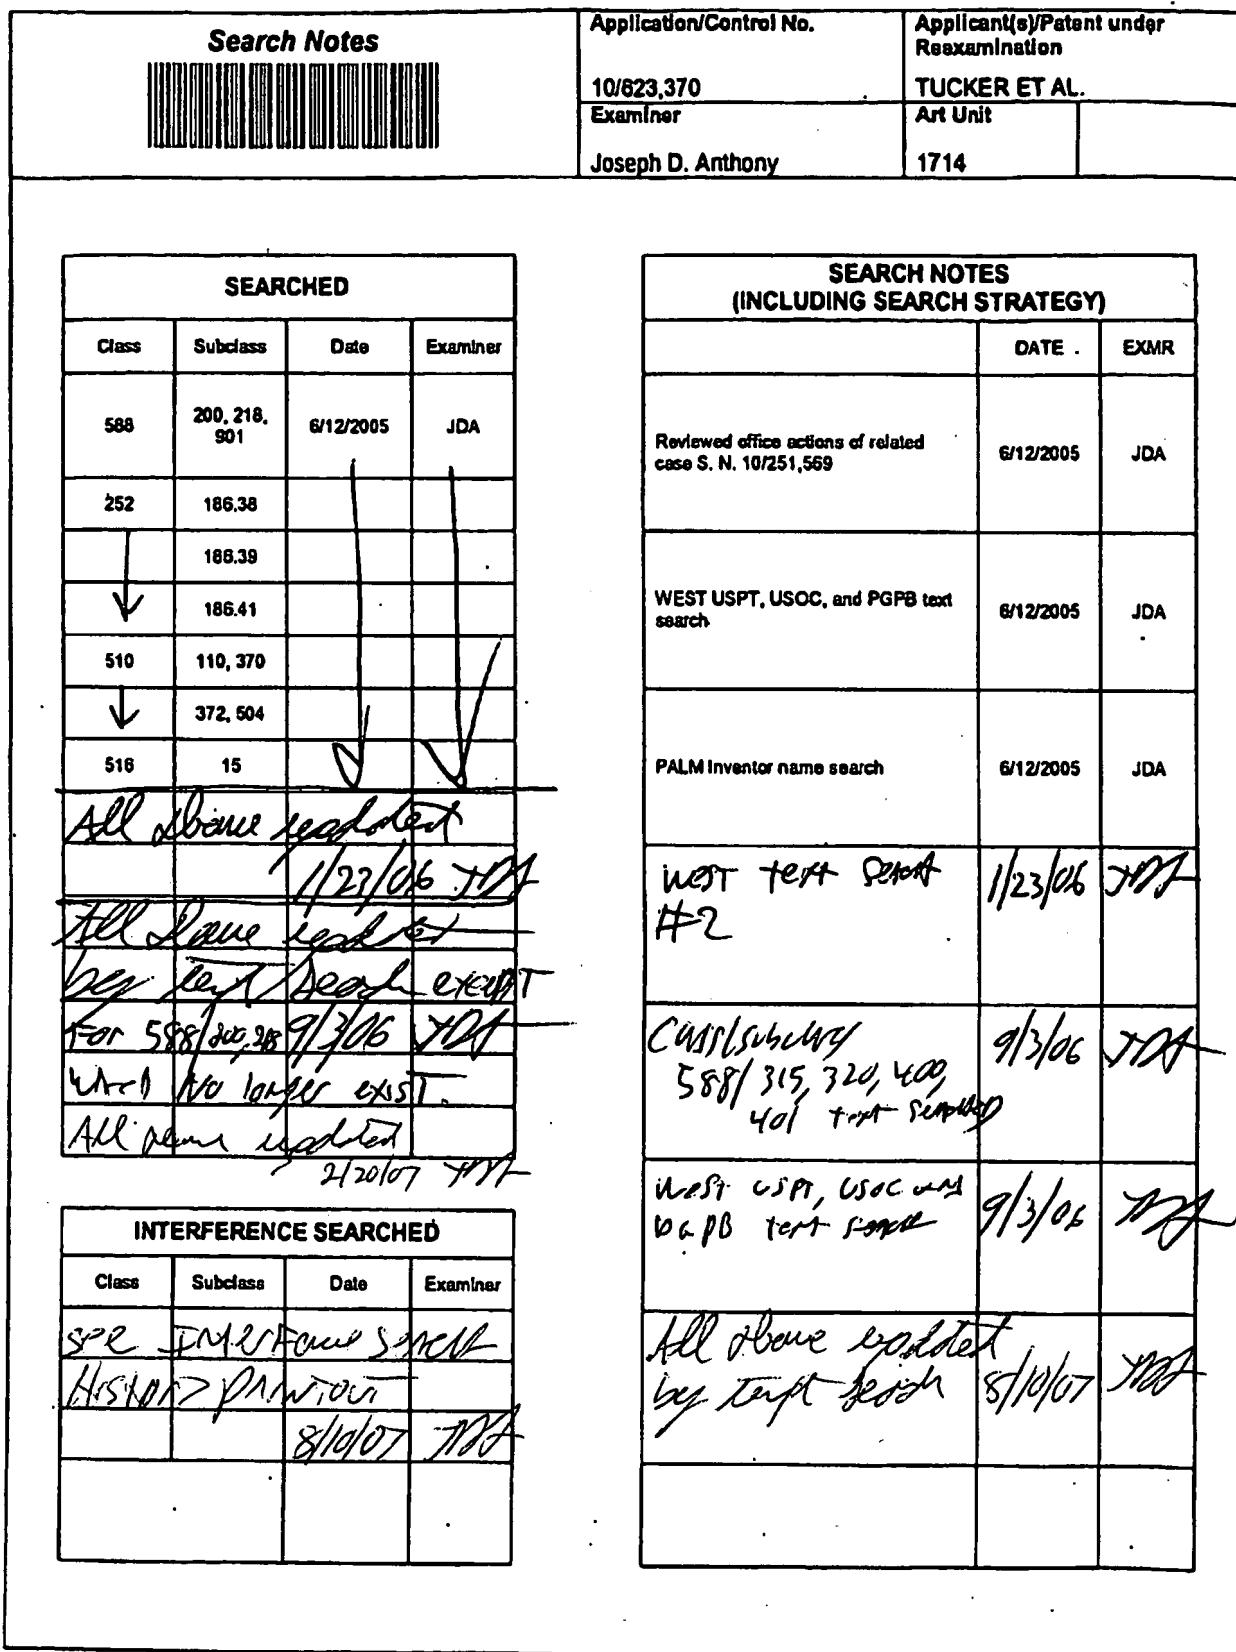 Search Notes
Application/Control No.
10/623,370
Applicant(s)/Patent under
Reexamination
TUCKER ET AL.
Examiner
Joseph D. Anthony
Art Unit
1714
SEARCHED
Class Subclass Date Examiner
588 200, 218, 901 6/12/2005 JDA
252 186.38
186.39
186.41
510 110, 370
372, 504
516 15
All above updated
1/23/06 JDA
All above updated
by text search except
For 588/200,218 9/3/06 JDA
which No longer exist.
All above updated
2/20/07 JDA
INTERFERENCE SEARCHED
Class Subclass Date Examiner
See Interference Search
History printout
8/10/07 JDA
SEARCH NOTES
(INCLUDING SEARCH STRATEGY)
DATE EXMR
Reviewed office actions of related
case S. N. 10/251,569 6/12/2005 JDA
WEST USPT, USOC, and PGPB text
search 6/12/2005 JDA
PALM Inventor name search 6/12/2005 JDA
West text search 1/23/06 JDA
#2
Class/subclass 9/3/06 JDA
588/315, 320, 400,
401 text searched
West USPT, USOC and
PGPB text search 9/3/06 JDA
All above updated
by text search 8/10/07 JDA